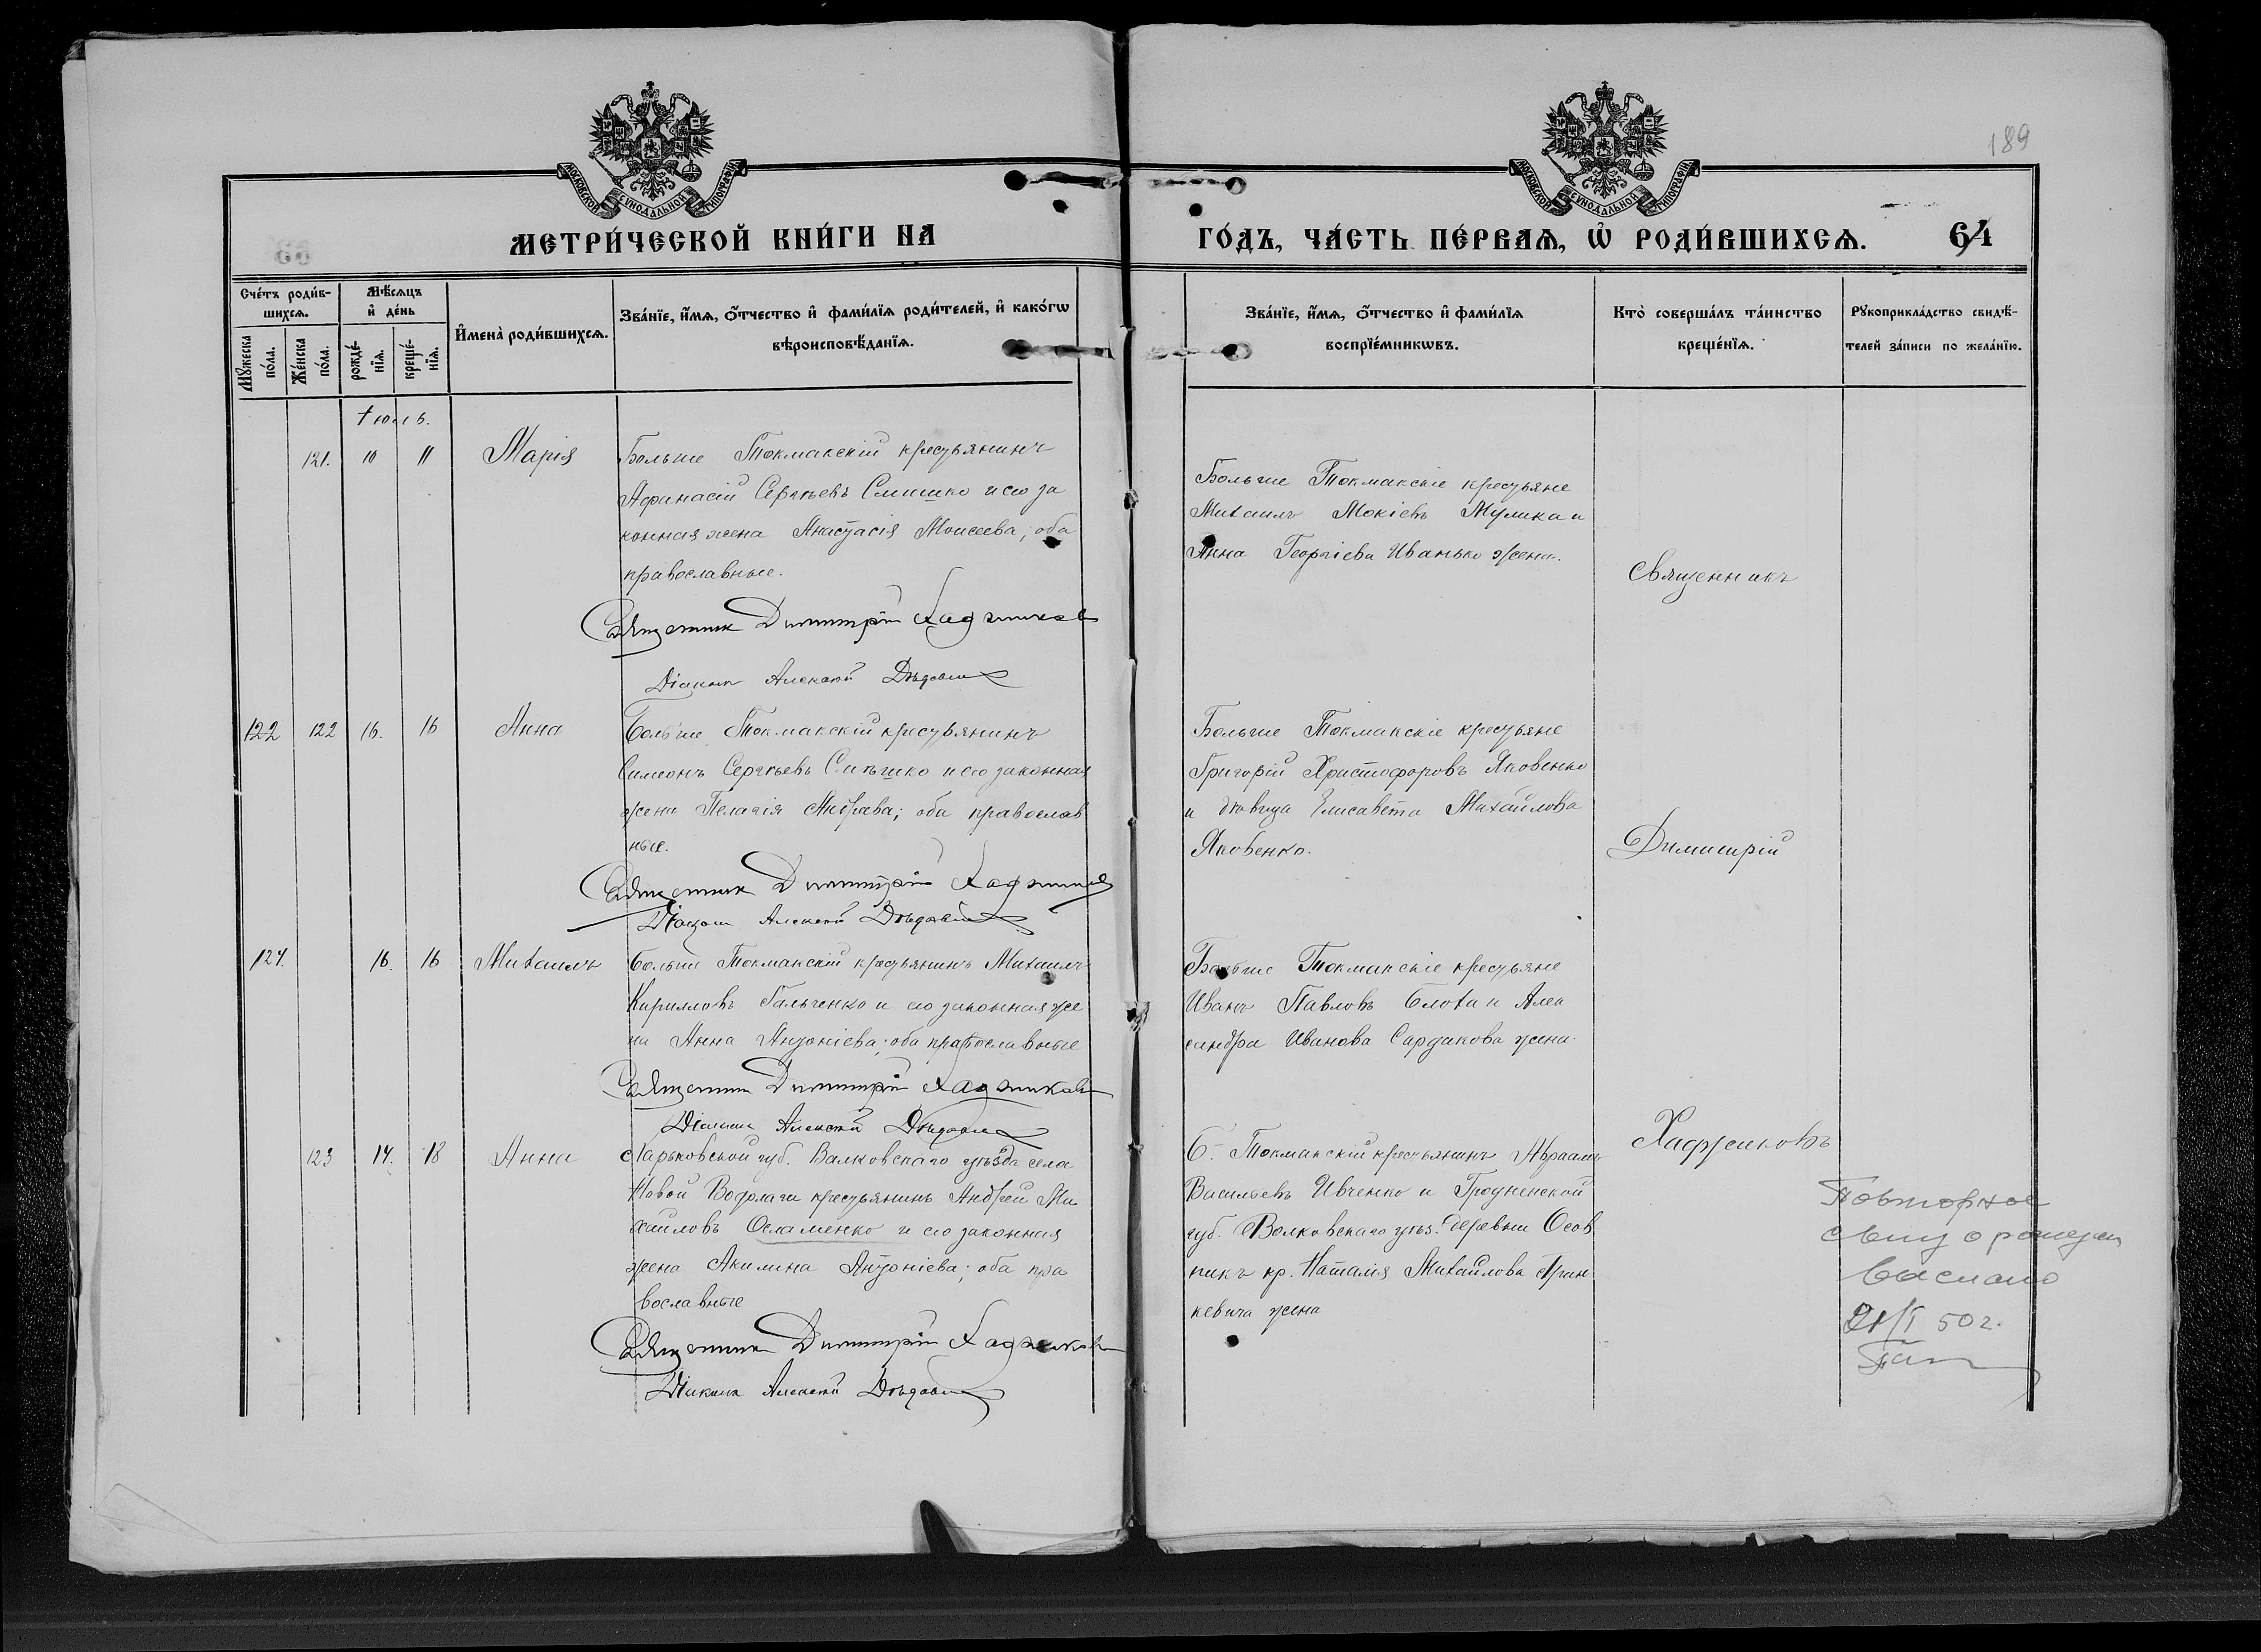 189
МОСКОВСКОЙ СѴНОДАЛЬНОЙ ТИПОГРАФІИ
МОСКОВСКОЙ СѴНОДАЛЬНОЙ ТИПОГРАФІИ
МЕТРИ́ЧЕСКОЙ КНИ́ГИ НА
ГО́ДЪ, ЧА́СТЬ ПЕ́РВАѦ, Ѡ҆ РОДИ́ВШИХСѦ. 64
Сче́тъ роди́в-
шихсѧ.
Мꙋ́жеска по́ла.
Же́нска по́ла.
Мѣ́сѧцъ
и҆ де́нь
рожде́-нїѧ.
креще́-нїѧ.
И҆мена̀ роди́вшихсѧ.
Зва́нїе, и҆́мѧ, ѻ҆́тчество и҆ фами́лїѧ роди́телей, и҆ како́гѡ
вѣроисповѣ́данїѧ.
Зва́нїе, и҆́мѧ, ѻ҆́тчество и҆ фами́лїѧ
воспрїе́мникѡвъ.
Кто̀ соверша́лъ та́инство
креще́нїѧ.
Рꙋкоприкла́дство свидѣ́-
телей за́писи по жела́нїю.
Іюль.
121. 10 11 Марія
Больше Токмакскій крестьянинъ
Афанасій Сергѣевъ Смишко и его за
конная жена Анастасія Моисеева, оба
православные.
Священник Димитрій Хаджинов
Діакон Алексей
Больше Токмакскіе крестьяне
Михаилъ Мокіевъ Мулика и
Анна Георгіева Иванько жена.
Священникъ
122 122 16. 16 Анна
Больше Токмакскій крестьянинъ
Симеонъ Сергѣевъ и его законная
жена Пелагія Андреева; оба православ
ные.
Священник Димитрій Хаджинов
Діакон Алексей
Больше Токмакскіе крестьяне
Григорій Христофоровъ Яковенко
и дѣвица Елисавета Михайлова
Яковенко.
Димитрій
124. 16. 16 Михаилъ
Больше Токмакскій крестьянинъ Михаилъ
Кирилловъ Гальченко и его законная же
на Анна Антоніева; оба православные
Священник Димитрій Хаджинов
Діакон Алексей
Больше Токмакскіе крестьяне
Иванъ Павловъ Блоха и Алек
сандра Иванова Сардакова жена.
Хаджиновъ
123 14. 18 Анна
Харьковской губ. Валковскаго уѣзда села
Новой Водолаги крестьянинъ Андрей Ми
хаиловъ Осламенко и его законная
жена Акилина Антоніева; оба пра
вославные
Священник Димитрій Хаджинов
Діакон Алексей
Б. Токмакскій крестьянинъ Авраамъ
Васильевъ Ивченко и Гродненской
губ. Волковскаго уѣз. деревни Осов
никъ кр. Наталія Михайлова Грин
кевича жена
Повторное
свид о рожден
выслано
21/I 50 г.